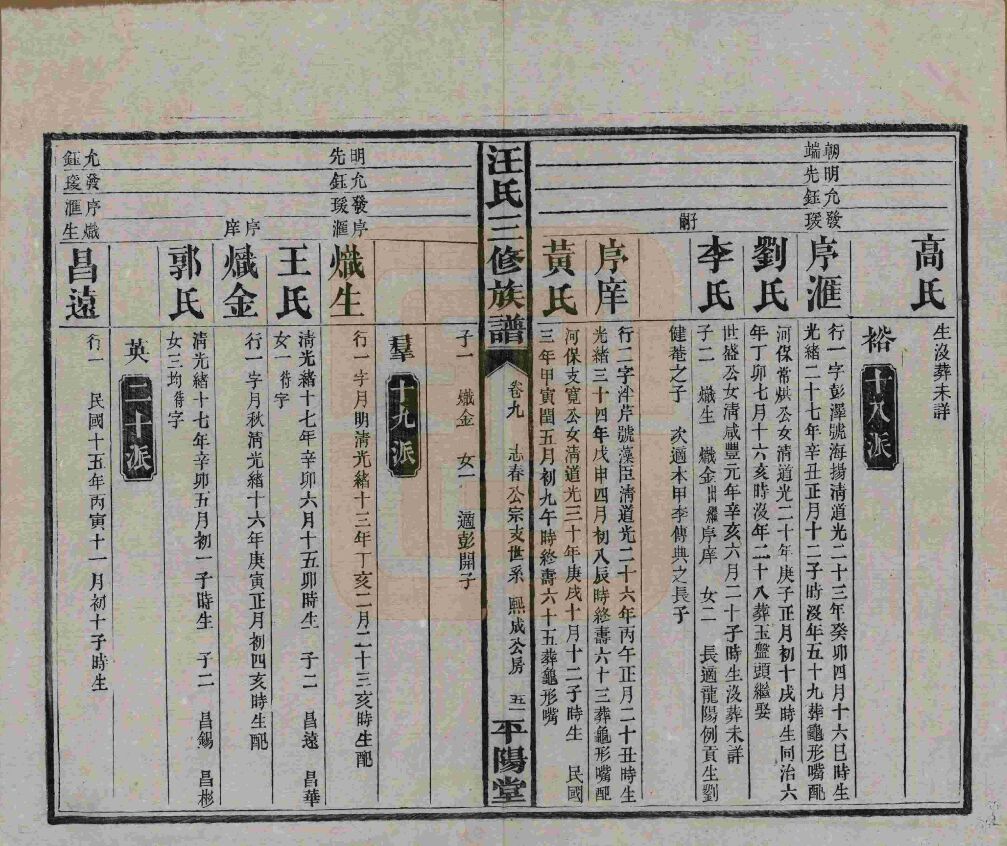 高氏
生沒葬未詳
裕 十八派
朝明允發
端先鈺瑗
序滙
行一字彭澤號海揚淸道光二十三年癸卯四月十六巳時生
光緒二十七年辛丑正月十二子時沒年五十九葬龜形嘴配
劉氏
河保常烘公女淸道光二十年庚子正月初十戌時生同治六
年丁卯七月十六亥時沒年二十八葬玉盤頭繼娶
李氏
世盛公女淸咸豐元年辛亥六月二十子時生沒葬未詳
子二 熾生 熾金出繼序庠 女二 長適龍陽例貢生劉
健菴之子 次適本甲李傳典之長子
嗣子
序庠
行二字泮芹號藻臣淸道光二十六年丙午正月二十丑時生
光緒三十四年戊申四月初八辰時終壽六十三葬龜形嘴配
黃氏
河保支寬公女淸道光三十年庚戌十月十二子時生 民國
三年甲寅閏五月初九午時終壽六十五葬龜形嘴
汪氏三修族譜
卷九 志春公宗支世系 熙成公房 五一
平陽堂
子一 熾金 女一 適彭開子
羣 十九派
明允發序
先鈺瑗滙
熾生
行一字月明淸光緒十三年丁亥二月二十三亥時生配
王氏
淸光緒十七年辛卯六月十五卯時生 子二 昌遠 昌華
女一待字
序庠
熾金
行一字月秋淸光緒十六年庚寅正月初四亥時生配
郭氏
淸光緒十七年辛卯五月初一子時生 子二 昌錫 昌彬
女三均待字
英 二十派
允發序熾
鈺瑗滙生
昌遠
行一 民國十五年丙寅十一月初十子時生